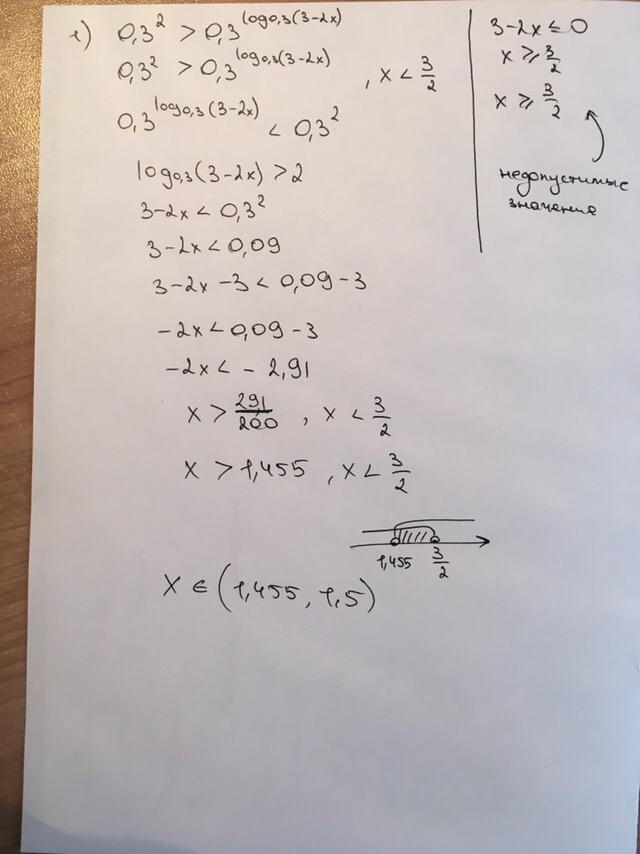 e) 0,3² > 0,3^log₀,₃(3-2x)
0,3² > 0,3^log₀,₃(3-2x) , x < 3/2
0,3^log₀,₃(3-2x) < 0,3²
log₀,₃(3-2x) > 2
3-2x < 0,3²
3-2x < 0,09
3-2x -3 < 0,09 -3
-2x < 0,09 - 3
-2x < - 2,91
x > 291/200 , x < 3/2
x > 1,455 , x < 3/2
1,455 3/2
x ∈ (1,455, 1,5)
3-2x ≤ 0
x ⩾ 3/2
x ⩾ 3/2
недопустимые
значение